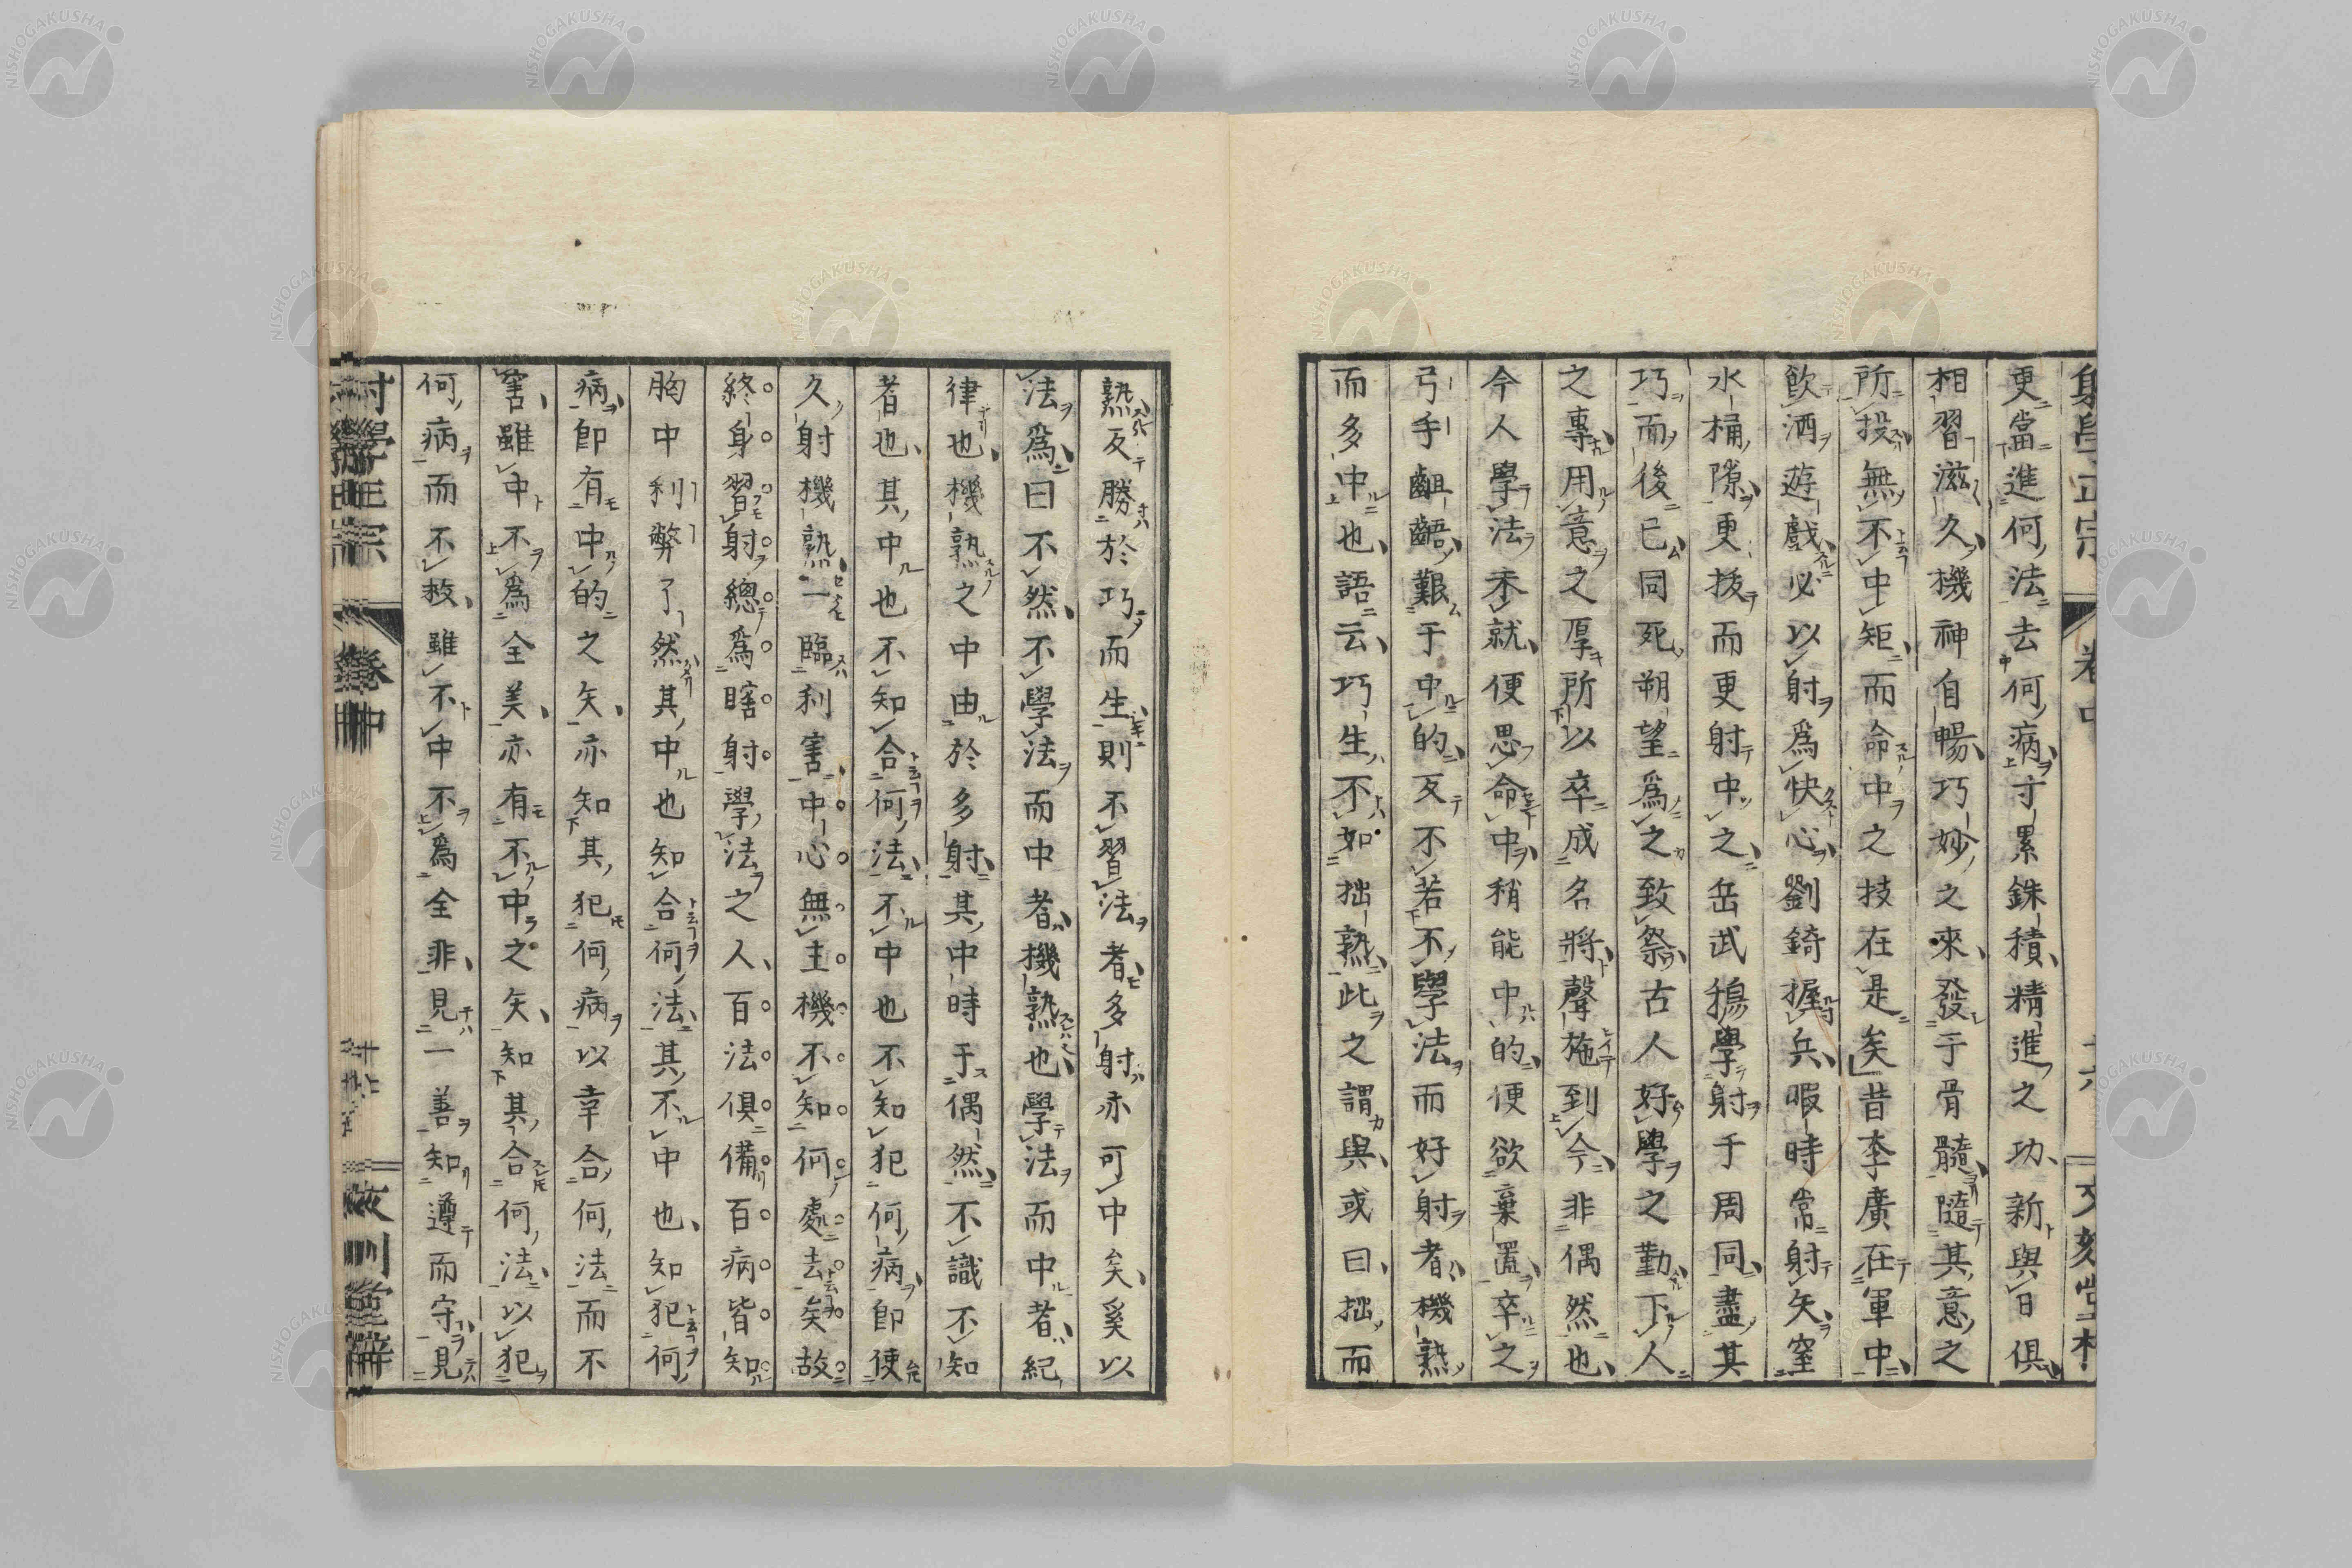 更當進何法去何病寸累銖積精進之功新與日俱
相習滋久機神自暢巧妙之來發于骨髓隨其意之
所投無不中矩而命中之技在是矣昔李廣在軍中
飲酒遊戲必以射爲快心劉錡握兵暇時常射矢窒
水桶隙更拔而更射中之岳武穆學射于周同盡其
巧而後已同死朔望爲之致祭古人好學之勤下人
之專用意之厚所以卒成名將聲施到今非偶然也
今人學法未就便思命中稍能中的便欲棄置卒之
弓手齟齬艱于中的反不若不學法而好射者機熟
而多中也語云巧生不如拙熟此之謂與或曰拙而
熟反勝於巧而生則不習法者多射亦可中矣奚以
法爲曰不然不學法而中者機熟也學法而中者紀
律也機熟之中由於多射其中時于偶然不識不知
者也其中也不知合何法不中也不知犯何病即使
久射機熟一臨利害中心無主機不知何處去矣故
終身習射總爲瞎射學法之人百法俱備百病皆知
胸中利弊了然其中也知合何法其不中也知犯何
病即有中的之矢亦知其犯何病以幸合何法而不
害雖中不爲全美亦有不中之矢知其合何法以犯
何病而不救雖不中不爲全非見一善知遵而守見
NISHOGAKUSHA